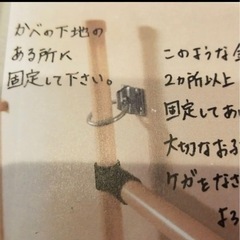 かべの下地の
ある所に
固定して下さい。
このような
2ヵ所以上
固定してあ
大切なお
ケガをなさ
よろ